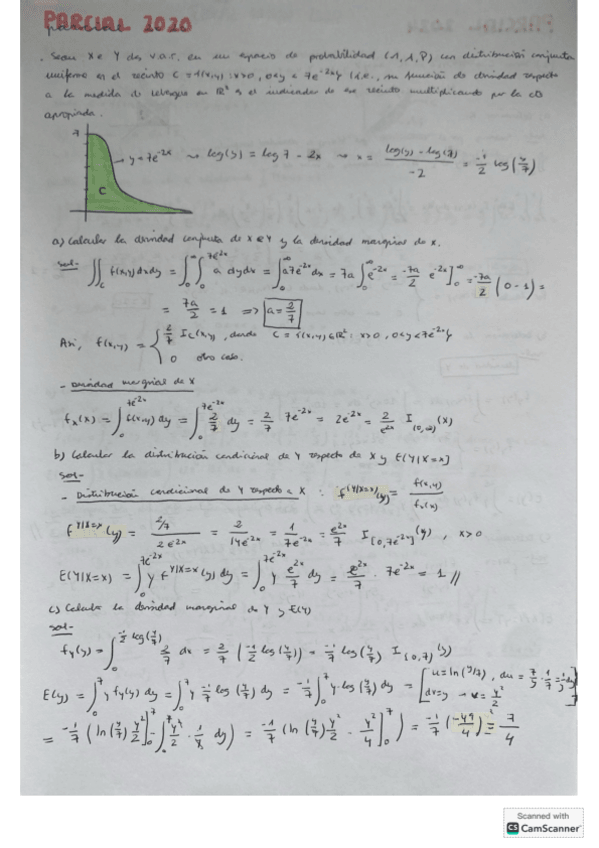 PARCIAL 2020
. Sean X e Y dos v.a.r. en un espacio de probabilidad (Ω, A, P) con distribución conjunta
uniforme en el recinto C = {(x,y) : x>0, 0<y < 7e^{-2x}} (i.e., su función de densidad respecto
a la medida de Lebesgue en R² es el indicador de ese recinto multiplicando por la cte
apropiada.
7
C
y = 7e^{-2x} ⇝ log(y) = log 7 - 2x ⇝ x = (log(y) - log(7))/-2 = -1/2 log(y/7)
a) Calcular la densidad conjunta de X e Y y la densidad marginal de X.
Sol-
∬_C f(x,y) dx dy = ∫_0^∞ ∫_0^{7e^{-2x}} a dy dx = ∫_0^∞ a 7e^{-2x} dx = 7a ∫_0^∞ e^{-2x} = -7a/2 e^{-2x} ]_0^∞ = -7a/2 (0 - 1) =
= 7a/2 = 1 ⟹ a = 2/7
Así, f(x,y) = { 2/7 I_C(x,y), donde C = {(x,y) ∈ R² : x>0, 0<y<7e^{-2x}}
0 otro caso.
- Densidad marginal de X
f_X(x) = ∫_0^{7e^{-2x}} f(x,y) dy = ∫_0^{7e^{-2x}} 2/7 dy = 2/7 7e^{-2x} = 2e^{-2x} = 2/e^{2x} I_{(0,∞)}(x)
b) Calcular la distribución condicional de Y respecto de X y E(Y|X=x)
Sol-
- Distribución condicional de Y respecto a X : f^{Y|X=x}(y) = f(x,y)/f_X(x)
f^{Y|X=x}(y) = (2/7)/(2e^{-2x}) = 2/(14e^{-2x}) = 1/(7e^{-2x}) = e^{2x}/7 I_{[0,7e^{-2x}]}(y), x>0
E(Y|X=x) = ∫_0^{7e^{-2x}} y f^{Y|X=x}(y) dy = ∫_0^{7e^{-2x}} y e^{2x}/7 dy = e^{2x}/7 · 7e^{-2x} = 1 //
c) Calcular la densidad marginal de Y y E(Y)
Sol-
f_Y(y) = ∫_0^{-1/2 log(y/7)} 2/7 dx = 2/7 (-1/2 log(y/7)) = -1/7 log(y/7) I_{(0,7)}(y)
E(y) = ∫_0^7 y f_Y(y) dy = ∫_0^7 y -1/7 log(y/7) dy = -1/7 ∫_0^7 y·log(y/7) dy = [u = ln(y/7), du = 7/y · 1/7 = 1/y dy
dv = y → v = y²/2]
= -1/7 (ln(y/7) y²/2 ]_0^7 - ∫_0^7 y²/2 · 1/y dy) = -1/7 (ln(y/7) y²/2 - y²/4 ]_0^7) = -1/7 (-49/4) = 7/4
Scanned with
CS CamScanner